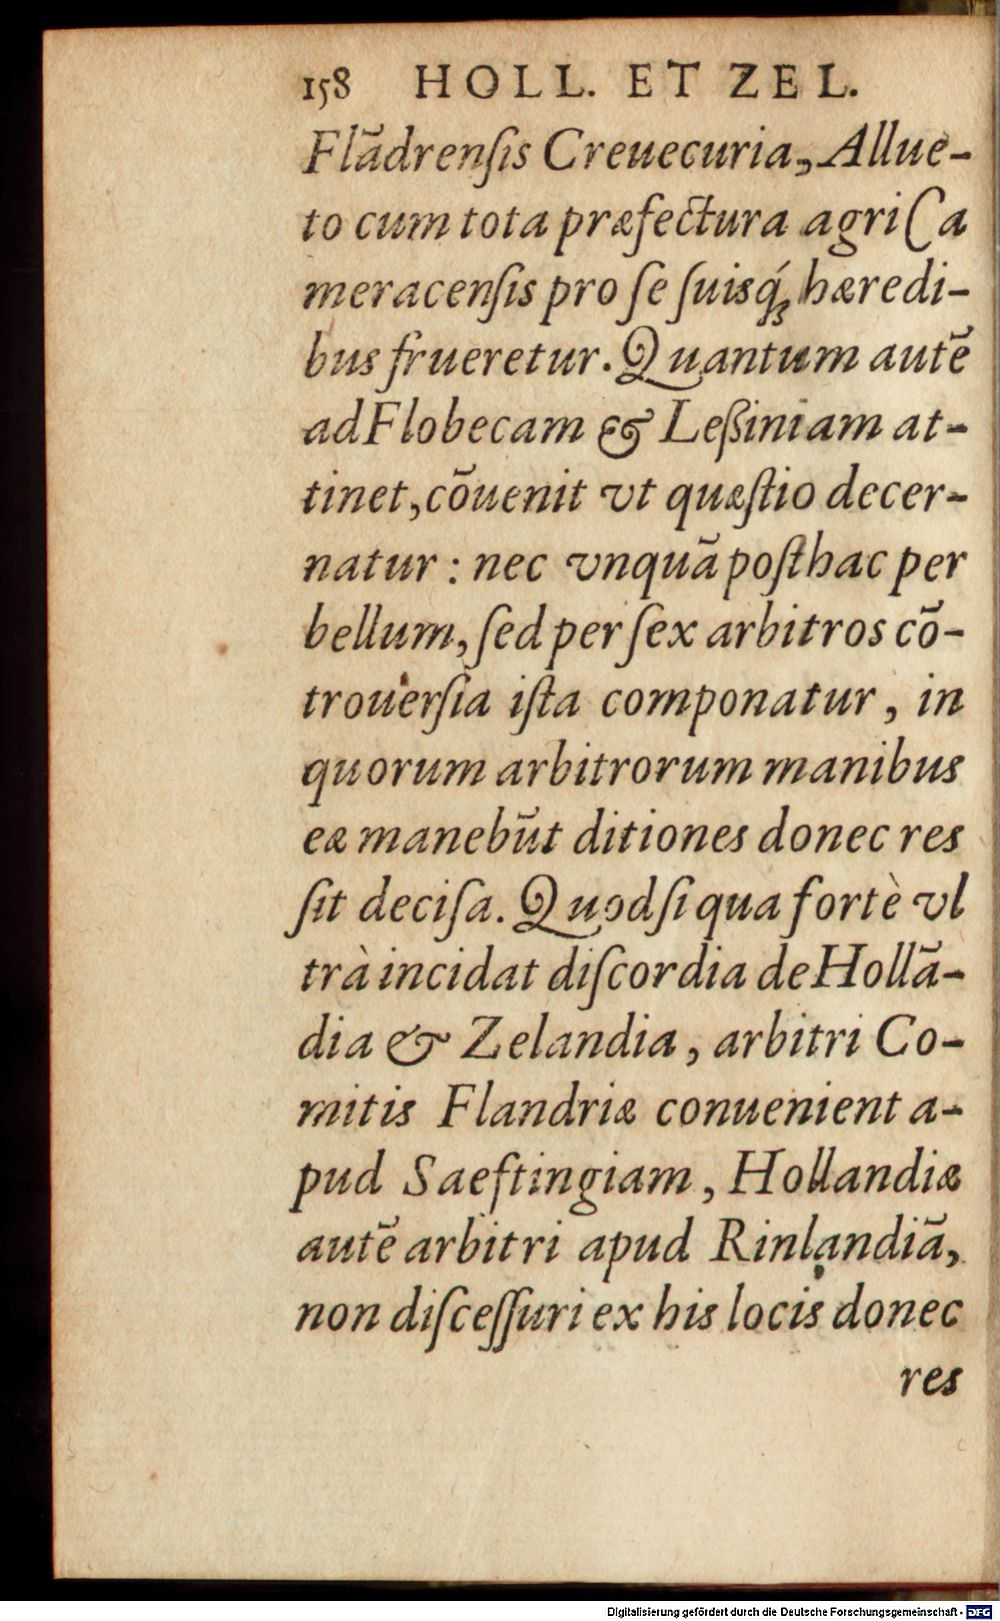 158 HOLL. ET ZEL.
Flãdrenſis Creuecuria, Allue-
to cum tota præfectura agri Ca
meracensſis pro ſe ſuisq́ꝫ hæredi-
bus frueretur. Quantum autẽ
ad Flobecam & Leßiniam at-
tinet, cõuenit vt quæſtio decer-
natur: nec vnquã poſthac per
bellum, ſed per ſex arbitros cõ-
trouerſia iſta componatur, in
quorum arbitrorum manibus
eæ manebũt ditiones donec res
ſit deciſa. Quod ſi qua fortè vl
trà incidat diſcordia de Hollã-
dia & Zelandia, arbitri Co-
mitis Flandriæ conuenient a-
pud Saeftingiam, Hollandiæ
autẽ arbitri apud Rinlandiã,
non diſceſſuri ex his locis donec
res
Digitalisierung gefördert durch die Deutsche Forschungsgemeinschaft - DFG